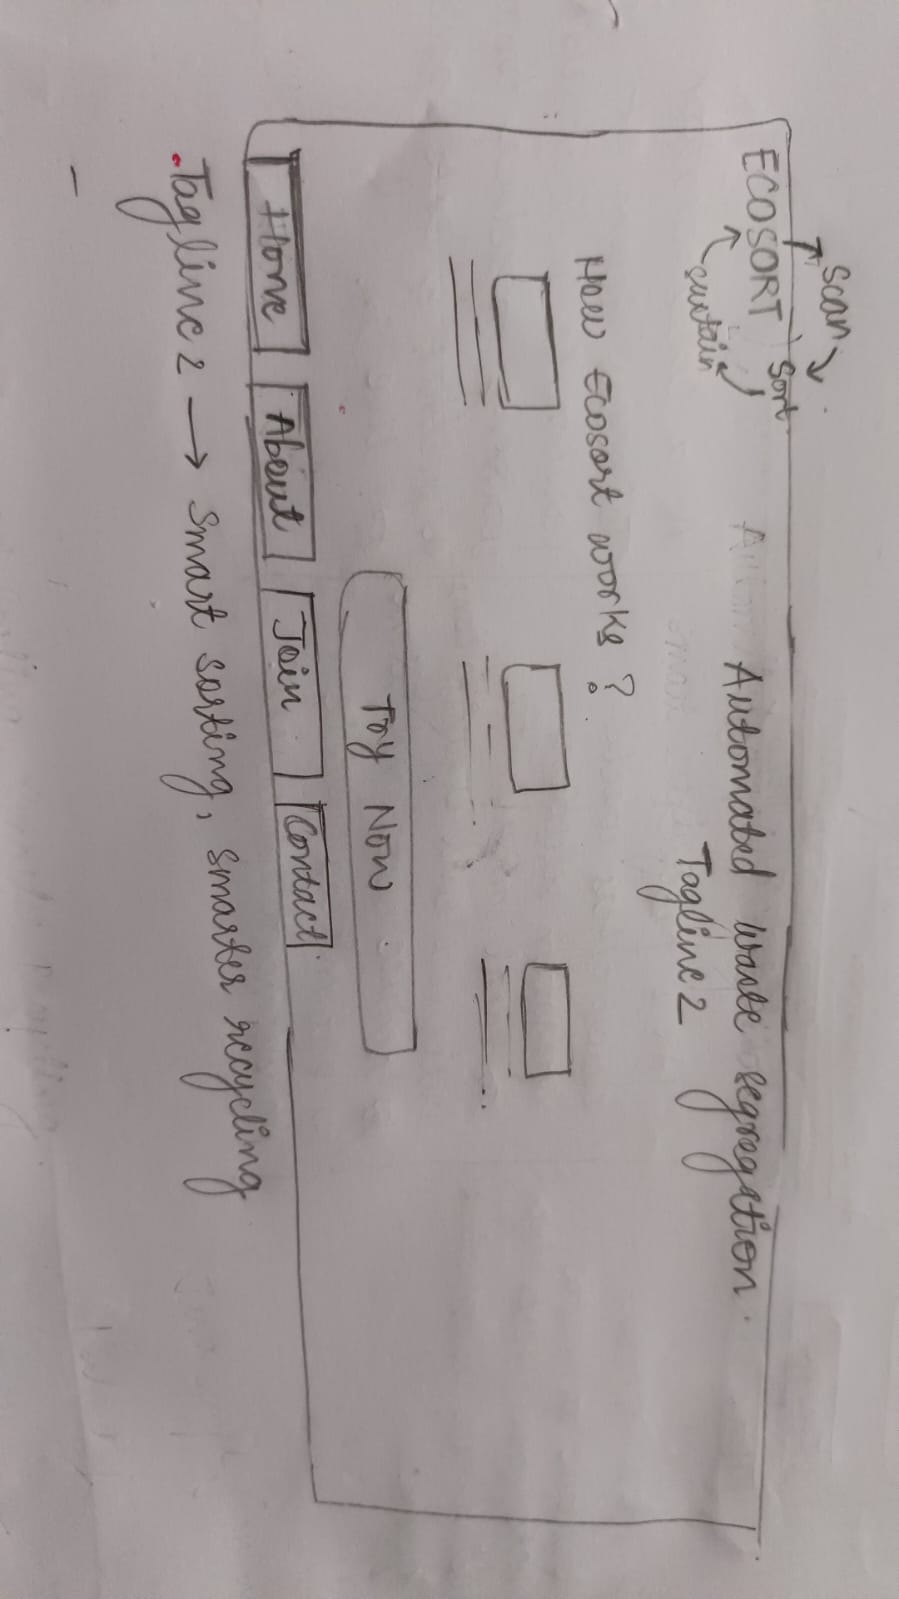 Scan
ECOSORT Sort
sustain
Automated waste segregation
Tagline 2
How Ecosort works ?
Try Now
Home About Join Contact
Tagline 2 → Smart sorting, smarter recycling